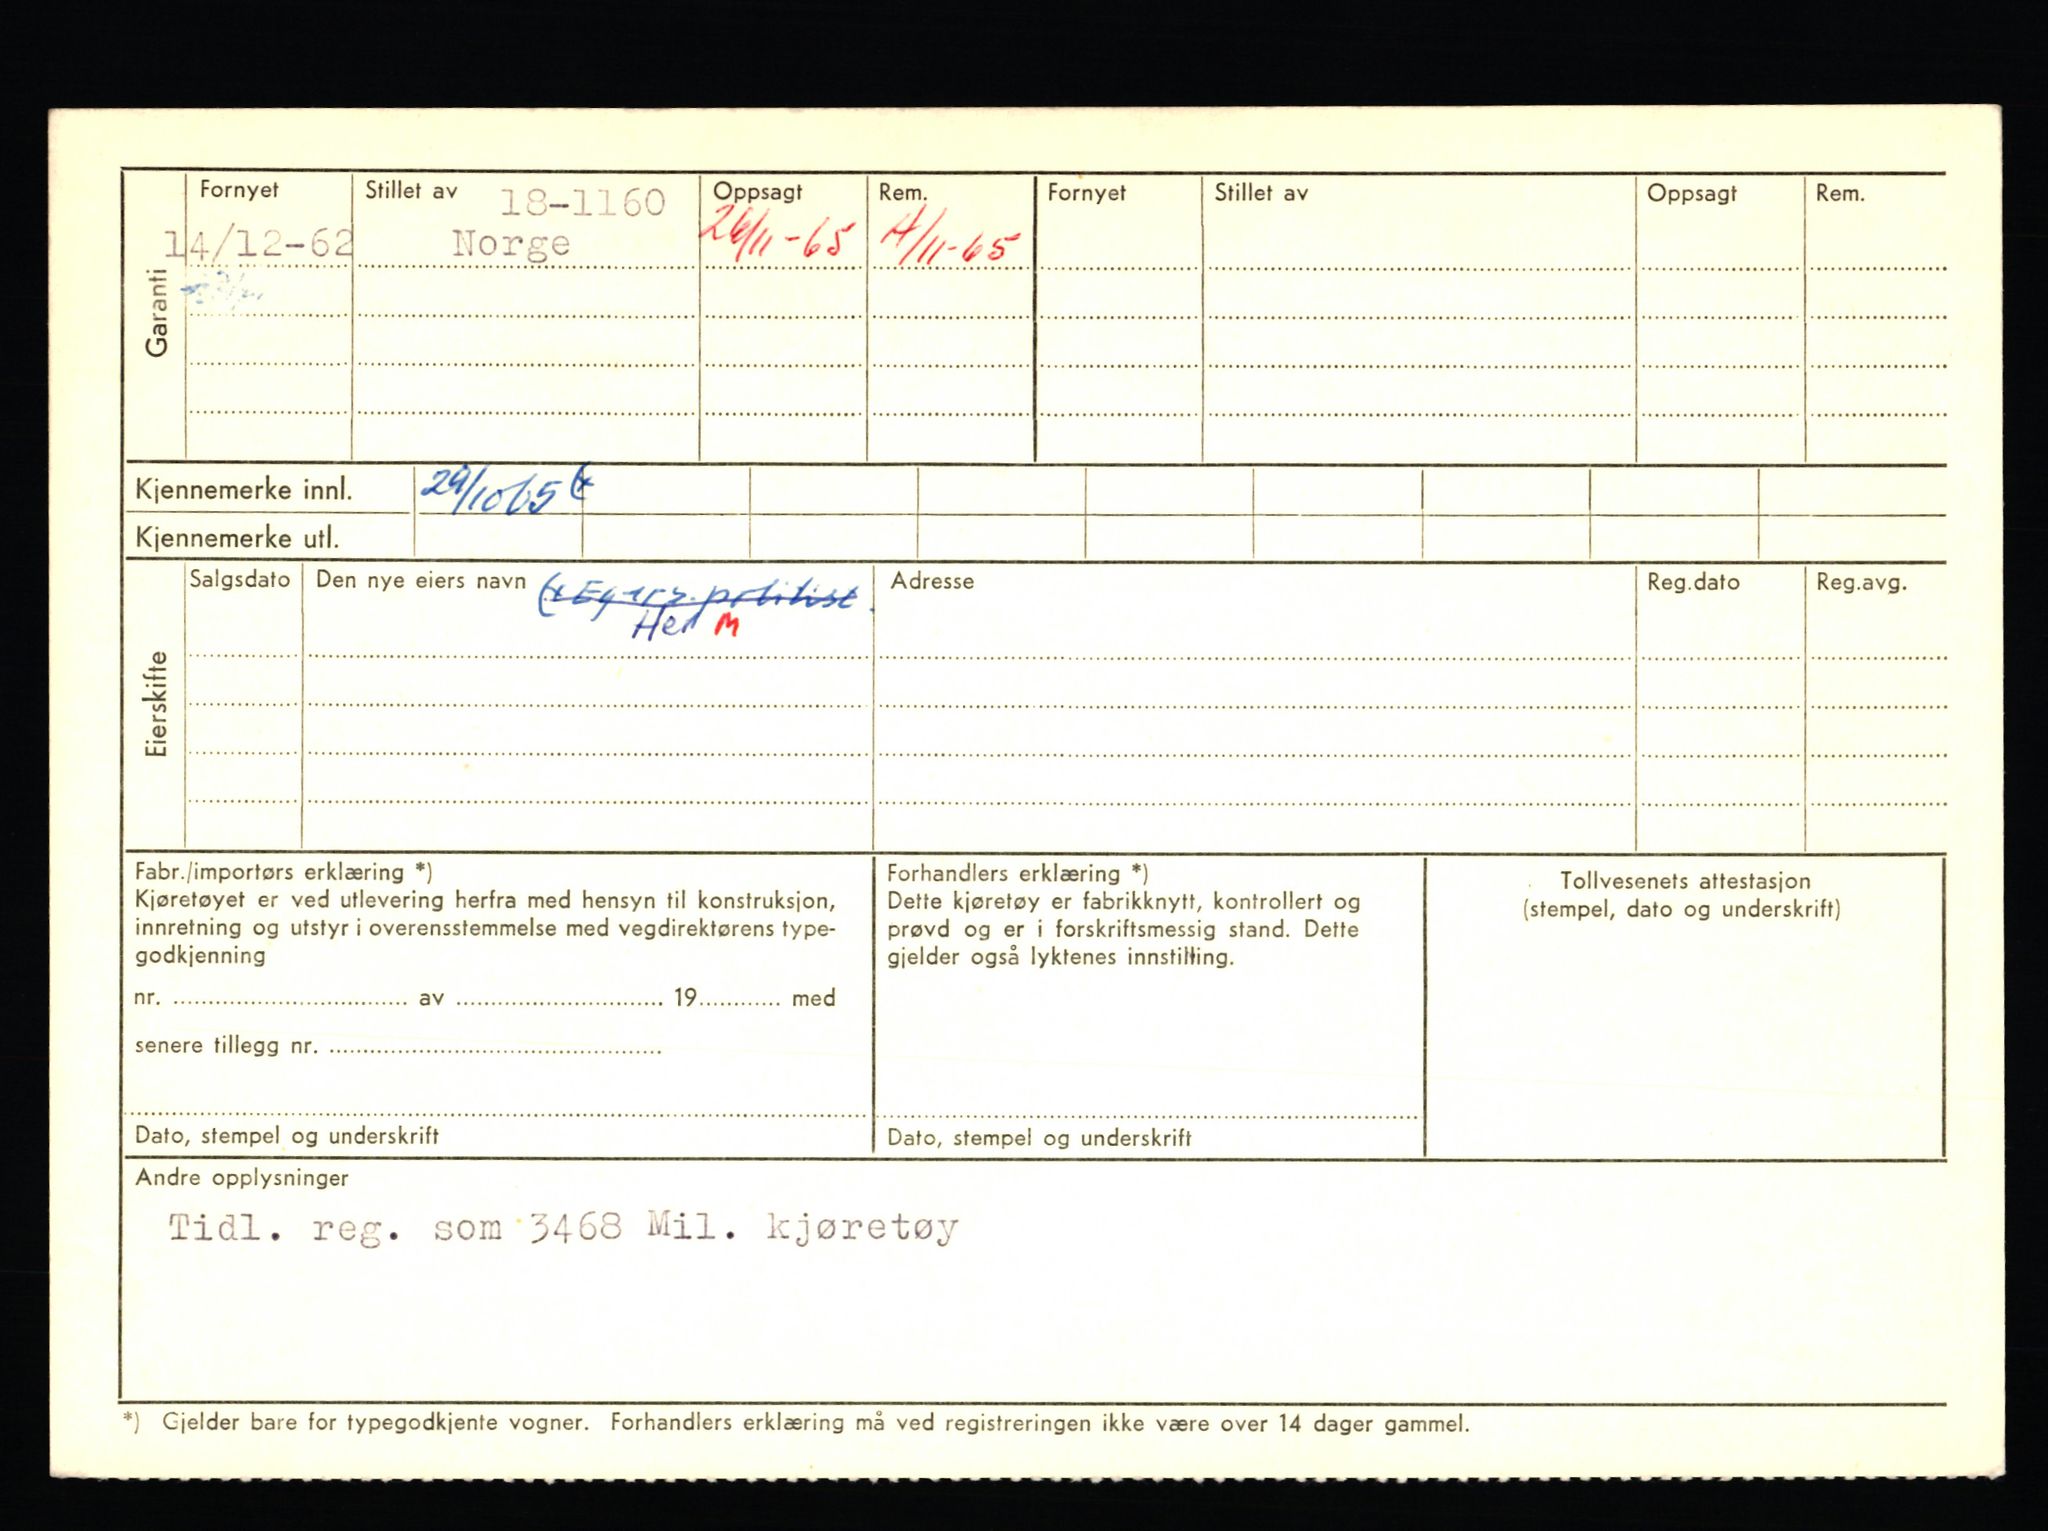 Garanti
Fornyet Stillet av 18-1160 Oppsagt Rem. Fornyet Stillet av Oppsagt Rem.
14/12-62 Norge 26/11-65 4/11-65
Kjennemerke innl. 29/10 65 (x
Kjennemerke utl.
Eierskifte
Salgsdato Den nye eiers navn (x Adresse Reg.dato Reg.avg.
Her M
Fabr./importørs erklæring *)
Kjøretøyet er ved utlevering herfra med hensyn til konstruksjon,
innretning og utstyr i overensstemmelse med vegdirektørens type-
godkjenning
nr. .................... av .................... 19............ med
senere tillegg nr. ....................
Dato, stempel og underskrift
Forhandlers erklæring *)
Dette kjøretøy er fabrikknytt, kontrollert og
prøvd og er i forskriftsmessig stand. Dette
gjelder også lyktenes innstilling.
Dato, stempel og underskrift
Tollvesenets attestasjon
(stempel, dato og underskrift)
Andre opplysninger
Tidl. reg. som 3468 Mil. kjøretøy
*) Gjelder bare for typegodkjente vogner. Forhandlers erklæring må ved registreringen ikke være over 14 dager gammel.